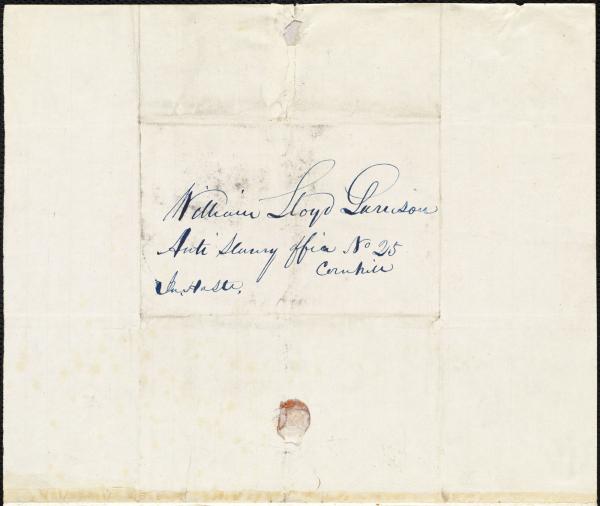 William Lloyd Garrison
Anti Slavery Office No 25
Cornhill
In Haste.